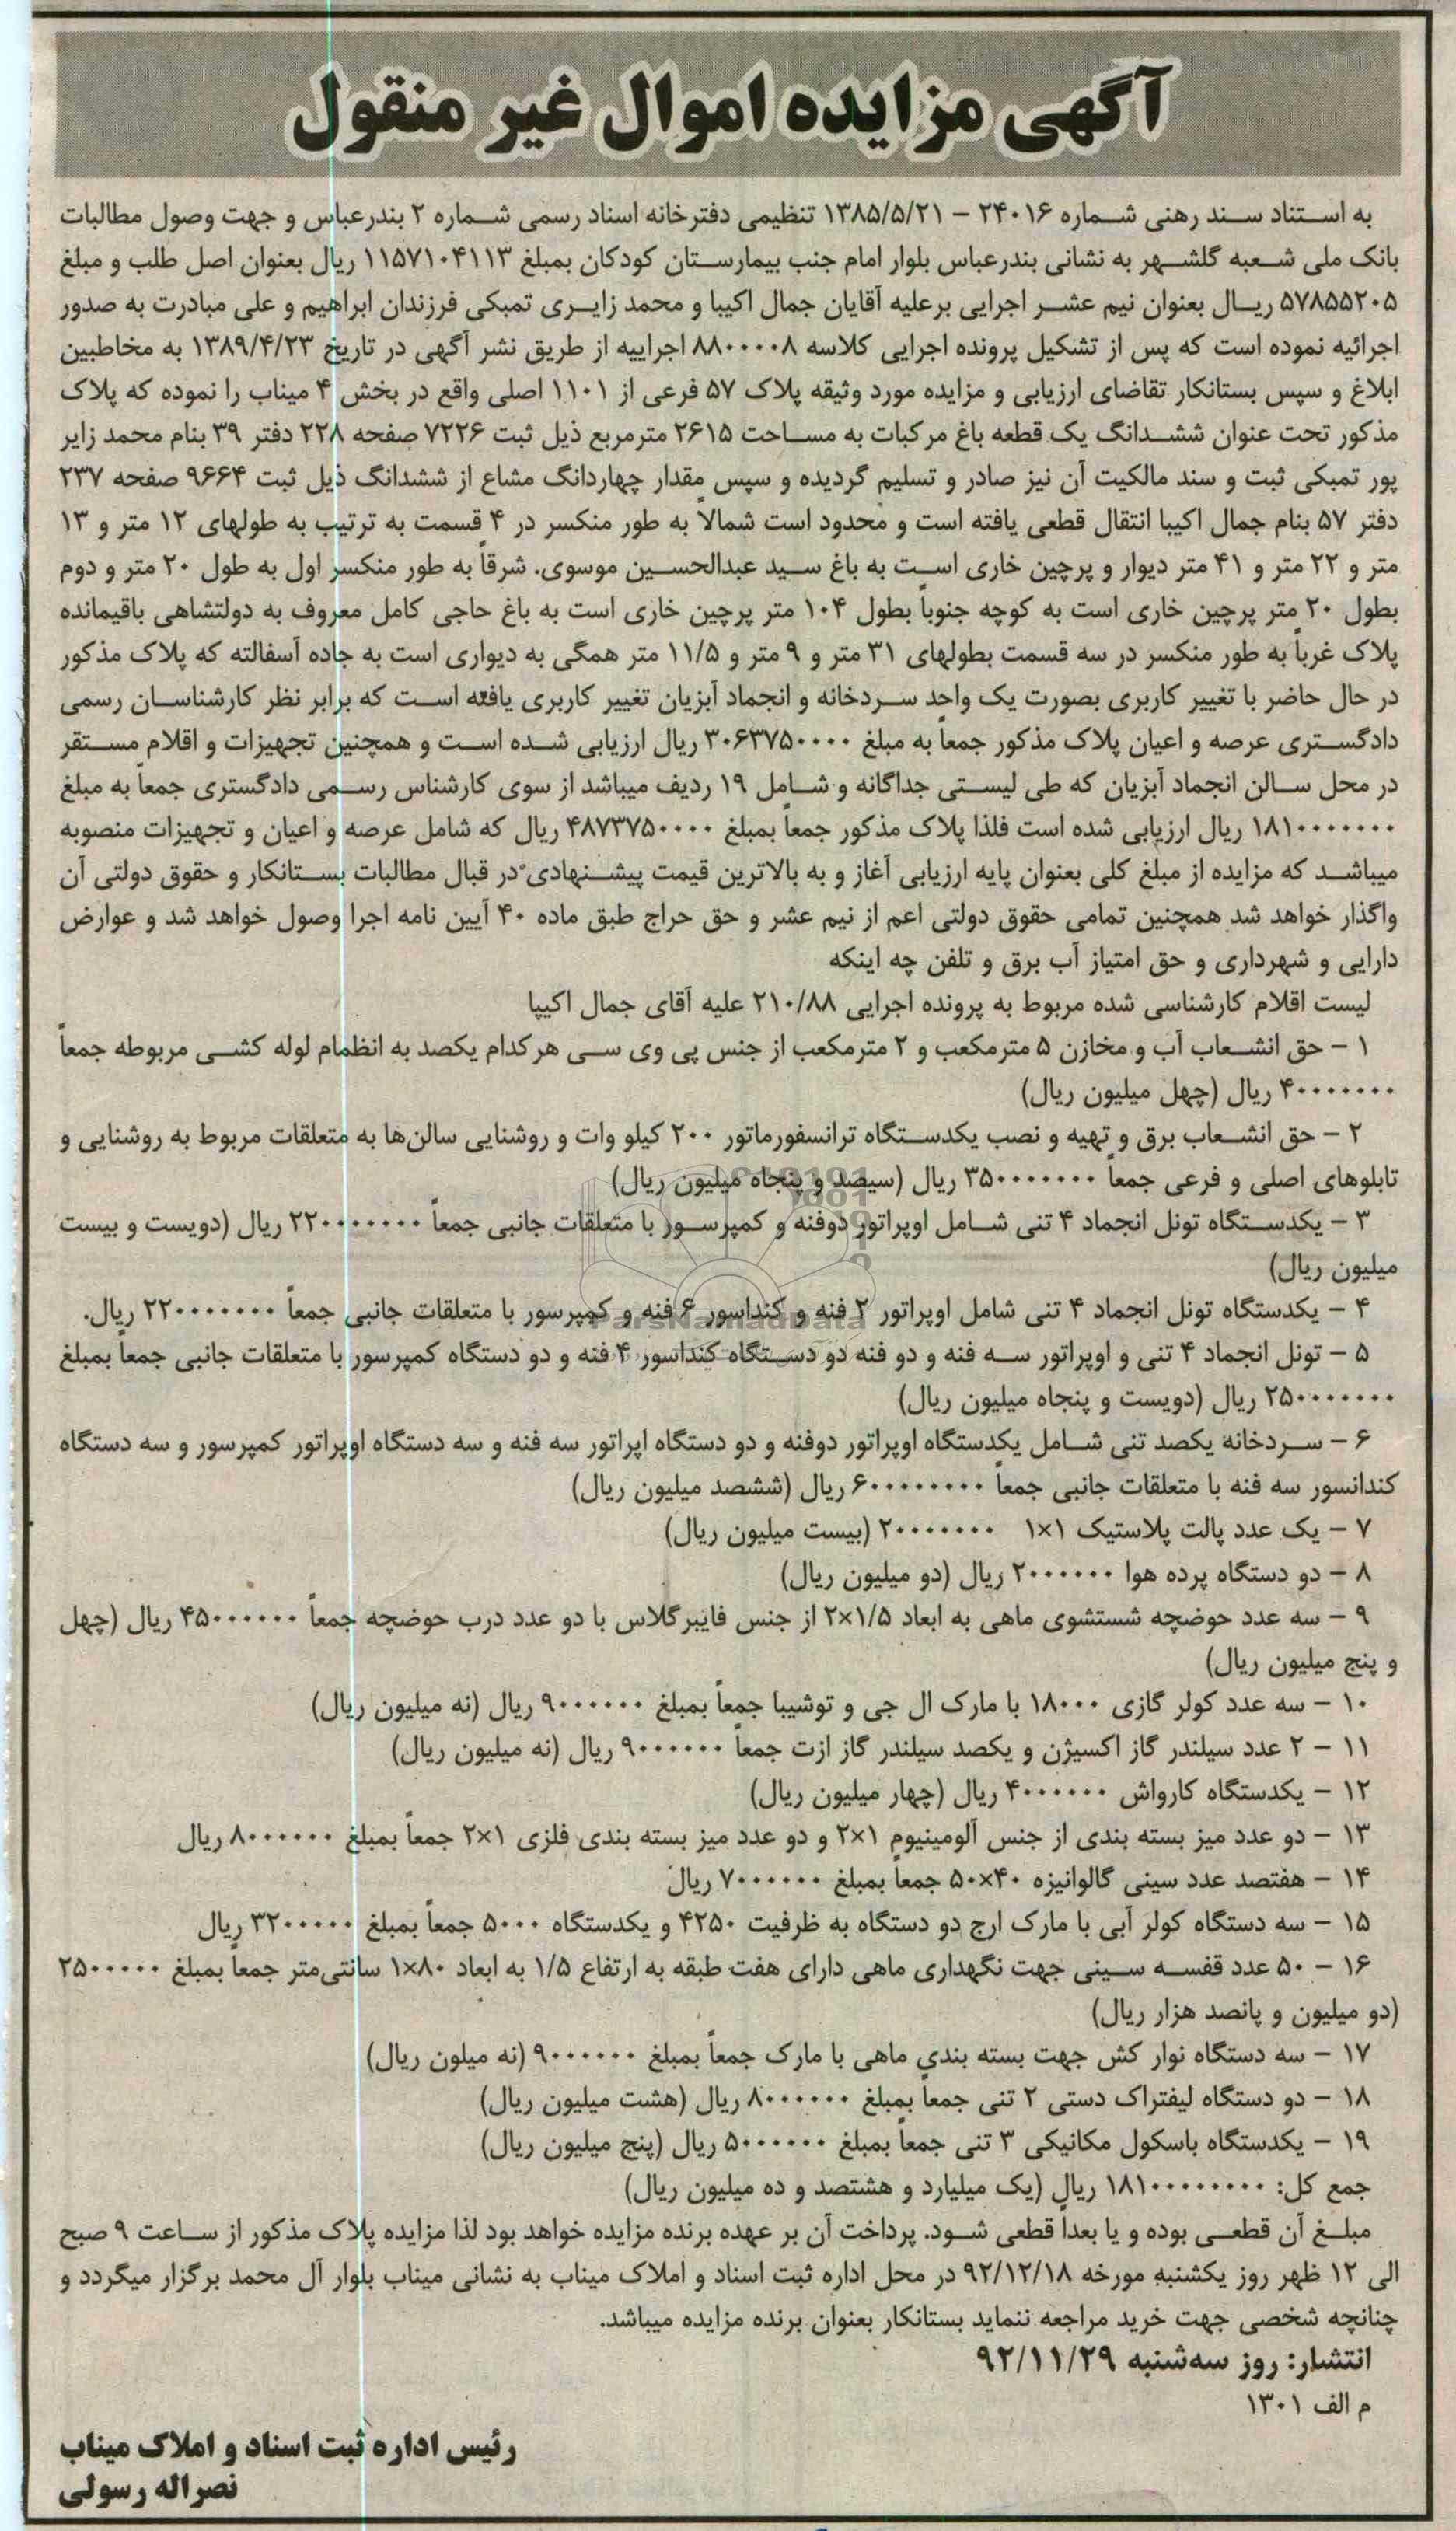 آگهی مزایده اموال غیر منقول
به استناد سند رهنی شماره ۲۴۰۱۶ – ۱۳۸۵/۵/۲۱ تنظیمی دفترخانه اسناد رسمی شماره ۲ بندرعباس و جهت وصول مطالبات
بانک ملی شعبه گلشهر به نشانی بندرعباس بلوار امام جنب بیمارستان کودکان بمبلغ ۱۱۵۷۱۰۴۱۱۳ ریال بعنوان اصل طلب و مبلغ
۵۷۸۵۵۲۰۵ ریال بعنوان نیم عشر اجرایی برعلیه آقایان جمال اکیبا و محمد زایری تمبکی فرزندان ابراهیم و علی مبادرت به صدور
اجرائیه نموده است که پس از تشکیل پرونده اجرایی کلاسه ۸۸۰۰۰۰۸ اجراییه از طریق نشر آگهی در تاریخ ۱۳۸۹/۴/۲۳ به مخاطبین
ابلاغ و سپس بستانکار تقاضای ارزیابی و مزایده مورد وثیقه پلاک ۵۷ فرعی از ۱۱۰۱ اصلی واقع در بخش ۴ میناب را نموده که پلاک
مذکور تحت عنوان ششدانگ یک قطعه باغ مرکبات به مساحت ۲۶۱۵ مترمربع ذیل ثبت ۷۲۲۶ صفحه ۲۲۸ دفتر ۳۹ بنام محمد زایر
پور تمبکی ثبت و سند مالکیت آن نیز صادر و تسلیم گردیده و سپس مقدار چهاردانگ مشاع از ششدانگ ذیل ثبت ۹۶۶۴ صفحه ۲۳۷
دفتر ۵۷ بنام جمال اکیبا انتقال قطعی یافته است و محدود است شمالاً به طور منکسر در ۴ قسمت به ترتیب به طولهای ۱۲ متر و ۱۳
متر و ۲۲ متر و ۴۱ متر دیوار و پرچین خاری است به باغ سید عبدالحسین موسوی. شرقاً به طور منکسر اول به طول ۲۰ متر و دوم
بطول ۲۰ متر پرچین خاری است به کوچه جنوباً بطول ۱۰۴ متر پرچین خاری است به باغ حاجی کامل معروف به دولتشاهی باقیمانده
پلاک غرباً به طور منکسر در سه قسمت بطولهای ۳۱ متر و ۹ متر و ۱۱/۵ متر همگی به دیواری است به جاده آسفالته که پلاک مذکور
در حال حاضر با تغییر کاربری بصورت یک واحد سردخانه و انجماد آبزیان تغییر کاربری یافته است که برابر نظر کارشناسان رسمی
دادگستری عرصه و اعیان پلاک مذکور جمعاً به مبلغ ۳۰۶۳۷۵۰۰۰۰ ریال ارزیابی شده است و همچنین تجهیزات و اقلام مستقر
در محل سالن انجماد آبزیان که طی لیستی جداگانه و شامل ۱۹ ردیف میباشد از سوی کارشناس رسمی دادگستری جمعاً به مبلغ
۱۸۱۰۰۰۰۰۰۰ ریال ارزیابی شده است فلذا پلاک مذکور جمعاً بمبلغ ۴۸۷۳۷۵۰۰۰۰ ریال که شامل عرصه و اعیان و تجهیزات منصوبه
میباشد که مزایده از مبلغ کلی بعنوان پایه ارزیابی آغاز و به بالاترین قیمت پیشنهادی در قبال مطالبات بستانکار و حقوق دولتی آن
واگذار خواهد شد همچنین تمامی حقوق دولتی اعم از نیم عشر و حق حراج طبق ماده ۴۰ آیین نامه اجرا وصول خواهد شد و عوارض
دارایی و شهرداری و حق امتیاز آب برق و تلفن چه اینکه
لیست اقلام کارشناسی شده مربوط به پرونده اجرایی ۲۱۰/۸۸ علیه آقای جمال اکیپا
۱ – حق انشعاب آب و مخازن ۵ مترمکعب و ۲ مترمکعب از جنس پی وی سی هرکدام یکصد به انظمام لوله کشی مربوطه جمعاً
۴۰۰۰۰۰۰۰ ریال (چهل میلیون ریال)
۲ – حق انشعاب برق و تهیه و نصب یکدستگاه ترانسفورماتور ۲۰۰ کیلو وات و روشنایی سالن‌ها به متعلقات مربوط به روشنایی و
تابلوهای اصلی و فرعی جمعاً ۳۵۰۰۰۰۰۰۰ ریال (سیصد و پنجاه میلیون ریال)
۳ – یکدستگاه تونل انجماد ۴ تنی شامل اوپراتور دوفنه و کمپرسور با متعلقات جانبی جمعاً ۲۲۰۰۰۰۰۰۰ ریال (دویست و بیست
میلیون ریال)
۴ – یکدستگاه تونل انجماد ۴ تنی شامل اوپراتور ۲ فنه و کنداسور ۶ فنه و کمپرسور با متعلقات جانبی جمعاً ۲۲۰۰۰۰۰۰۰ ریال.
ParsNamadData
۵ – تونل انجماد ۴ تنی و اوپراتور سه فنه و دو فنه دو دستگاه کنداسور ۴ فنه و دو دستگاه کمپرسور با متعلقات جانبی جمعاً بمبلغ
۲۵۰۰۰۰۰۰۰ ریال (دویست و پنجاه میلیون ریال)
۶ – سردخانه یکصد تنی شامل یکدستگاه اوپراتور دوفنه و دو دستگاه اپراتور سه فنه و سه دستگاه اوپراتور کمپرسور و سه دستگاه
کندانسور سه فنه با متعلقات جانبی جمعاً ۶۰۰۰۰۰۰۰۰ ریال (ششصد میلیون ریال)
۷ – یک عدد پالت پلاستیک ۱×۱ ۲۰۰۰۰۰۰۰ (بیست میلیون ریال)
۸ – دو دستگاه پرده هوا ۲۰۰۰۰۰۰ ریال (دو میلیون ریال)
۹ – سه عدد حوضچه شستشوی ماهی به ابعاد ۱/۵×۲ از جنس فایبرگلاس با دو عدد درب حوضچه جمعاً ۴۵۰۰۰۰۰۰ ریال (چهل
و پنج میلیون ریال)
۱۰ – سه عدد کولر گازی ۱۸۰۰۰ با مارک ال جی و توشیبا جمعاً بمبلغ ۹۰۰۰۰۰۰ ریال (نه میلیون ریال)
۱۱ – ۲ عدد سیلندر گاز اکسیژن و یکصد سیلندر گاز ازت جمعاً ۹۰۰۰۰۰۰ ریال (نه میلیون ریال)
۱۲ – یکدستگاه کارواش ۴۰۰۰۰۰۰ ریال (چهار میلیون ریال)
۱۳ – دو عدد میز بسته بندی از جنس آلومینیوم ۱×۲ و دو عدد میز بسته بندی فلزی ۱×۲ جمعاً بمبلغ ۸۰۰۰۰۰۰ ریال
۱۴ – هفتصد عدد سینی گالوانیزه ۴۰×۵۰ جمعاً بمبلغ ۷۰۰۰۰۰۰ ریال
۱۵ – سه دستگاه کولر آبی با مارک ارج دو دستگاه به ظرفیت ۴۲۵۰ و یکدستگاه ۵۰۰۰ جمعاً بمبلغ ۳۲۰۰۰۰۰ ریال
۱۶ – ۵۰ عدد قفسه سینی جهت نگهداری ماهی دارای هفت طبقه به ارتفاع ۱/۵ به ابعاد ۸۰×۱ سانتی‌متر جمعاً بمبلغ ۲۵۰۰۰۰۰
(دو میلیون و پانصد هزار ریال)
۱۷ – سه دستگاه نوار کش جهت بسته بندی ماهی با مارک جمعاً بمبلغ ۹۰۰۰۰۰۰ (نه میلون ریال)
۱۸ – دو دستگاه لیفتراک دستی ۲ تنی جمعاً بمبلغ ۸۰۰۰۰۰۰ ریال (هشت میلیون ریال)
۱۹ – یکدستگاه باسکول مکانیکی ۳ تنی جمعاً بمبلغ ۵۰۰۰۰۰۰ ریال (پنج میلیون ریال)
جمع کل: ۱۸۱۰۰۰۰۰۰۰۰ ریال (یک میلیارد و هشتصد و ده میلیون ریال)
مبلغ آن قطعی بوده و یا بعداً قطعی شود. پرداخت آن بر عهده برنده مزایده خواهد بود لذا مزایده پلاک مذکور از ساعت ۹ صبح
الی ۱۲ ظهر روز یکشنبه مورخه ۹۲/۱۲/۱۸ در محل اداره ثبت اسناد و املاک میناب به نشانی میناب بلوار آل محمد برگزار میگردد و
چنانچه شخصی جهت خرید مراجعه ننماید بستانکار بعنوان برنده مزایده میباشد.
انتشار: روز سه‌شنبه ۹۲/۱۱/۲۹
م الف ۱۳۰۱
رئیس اداره ثبت اسناد و املاک میناب
نصراله رسولی